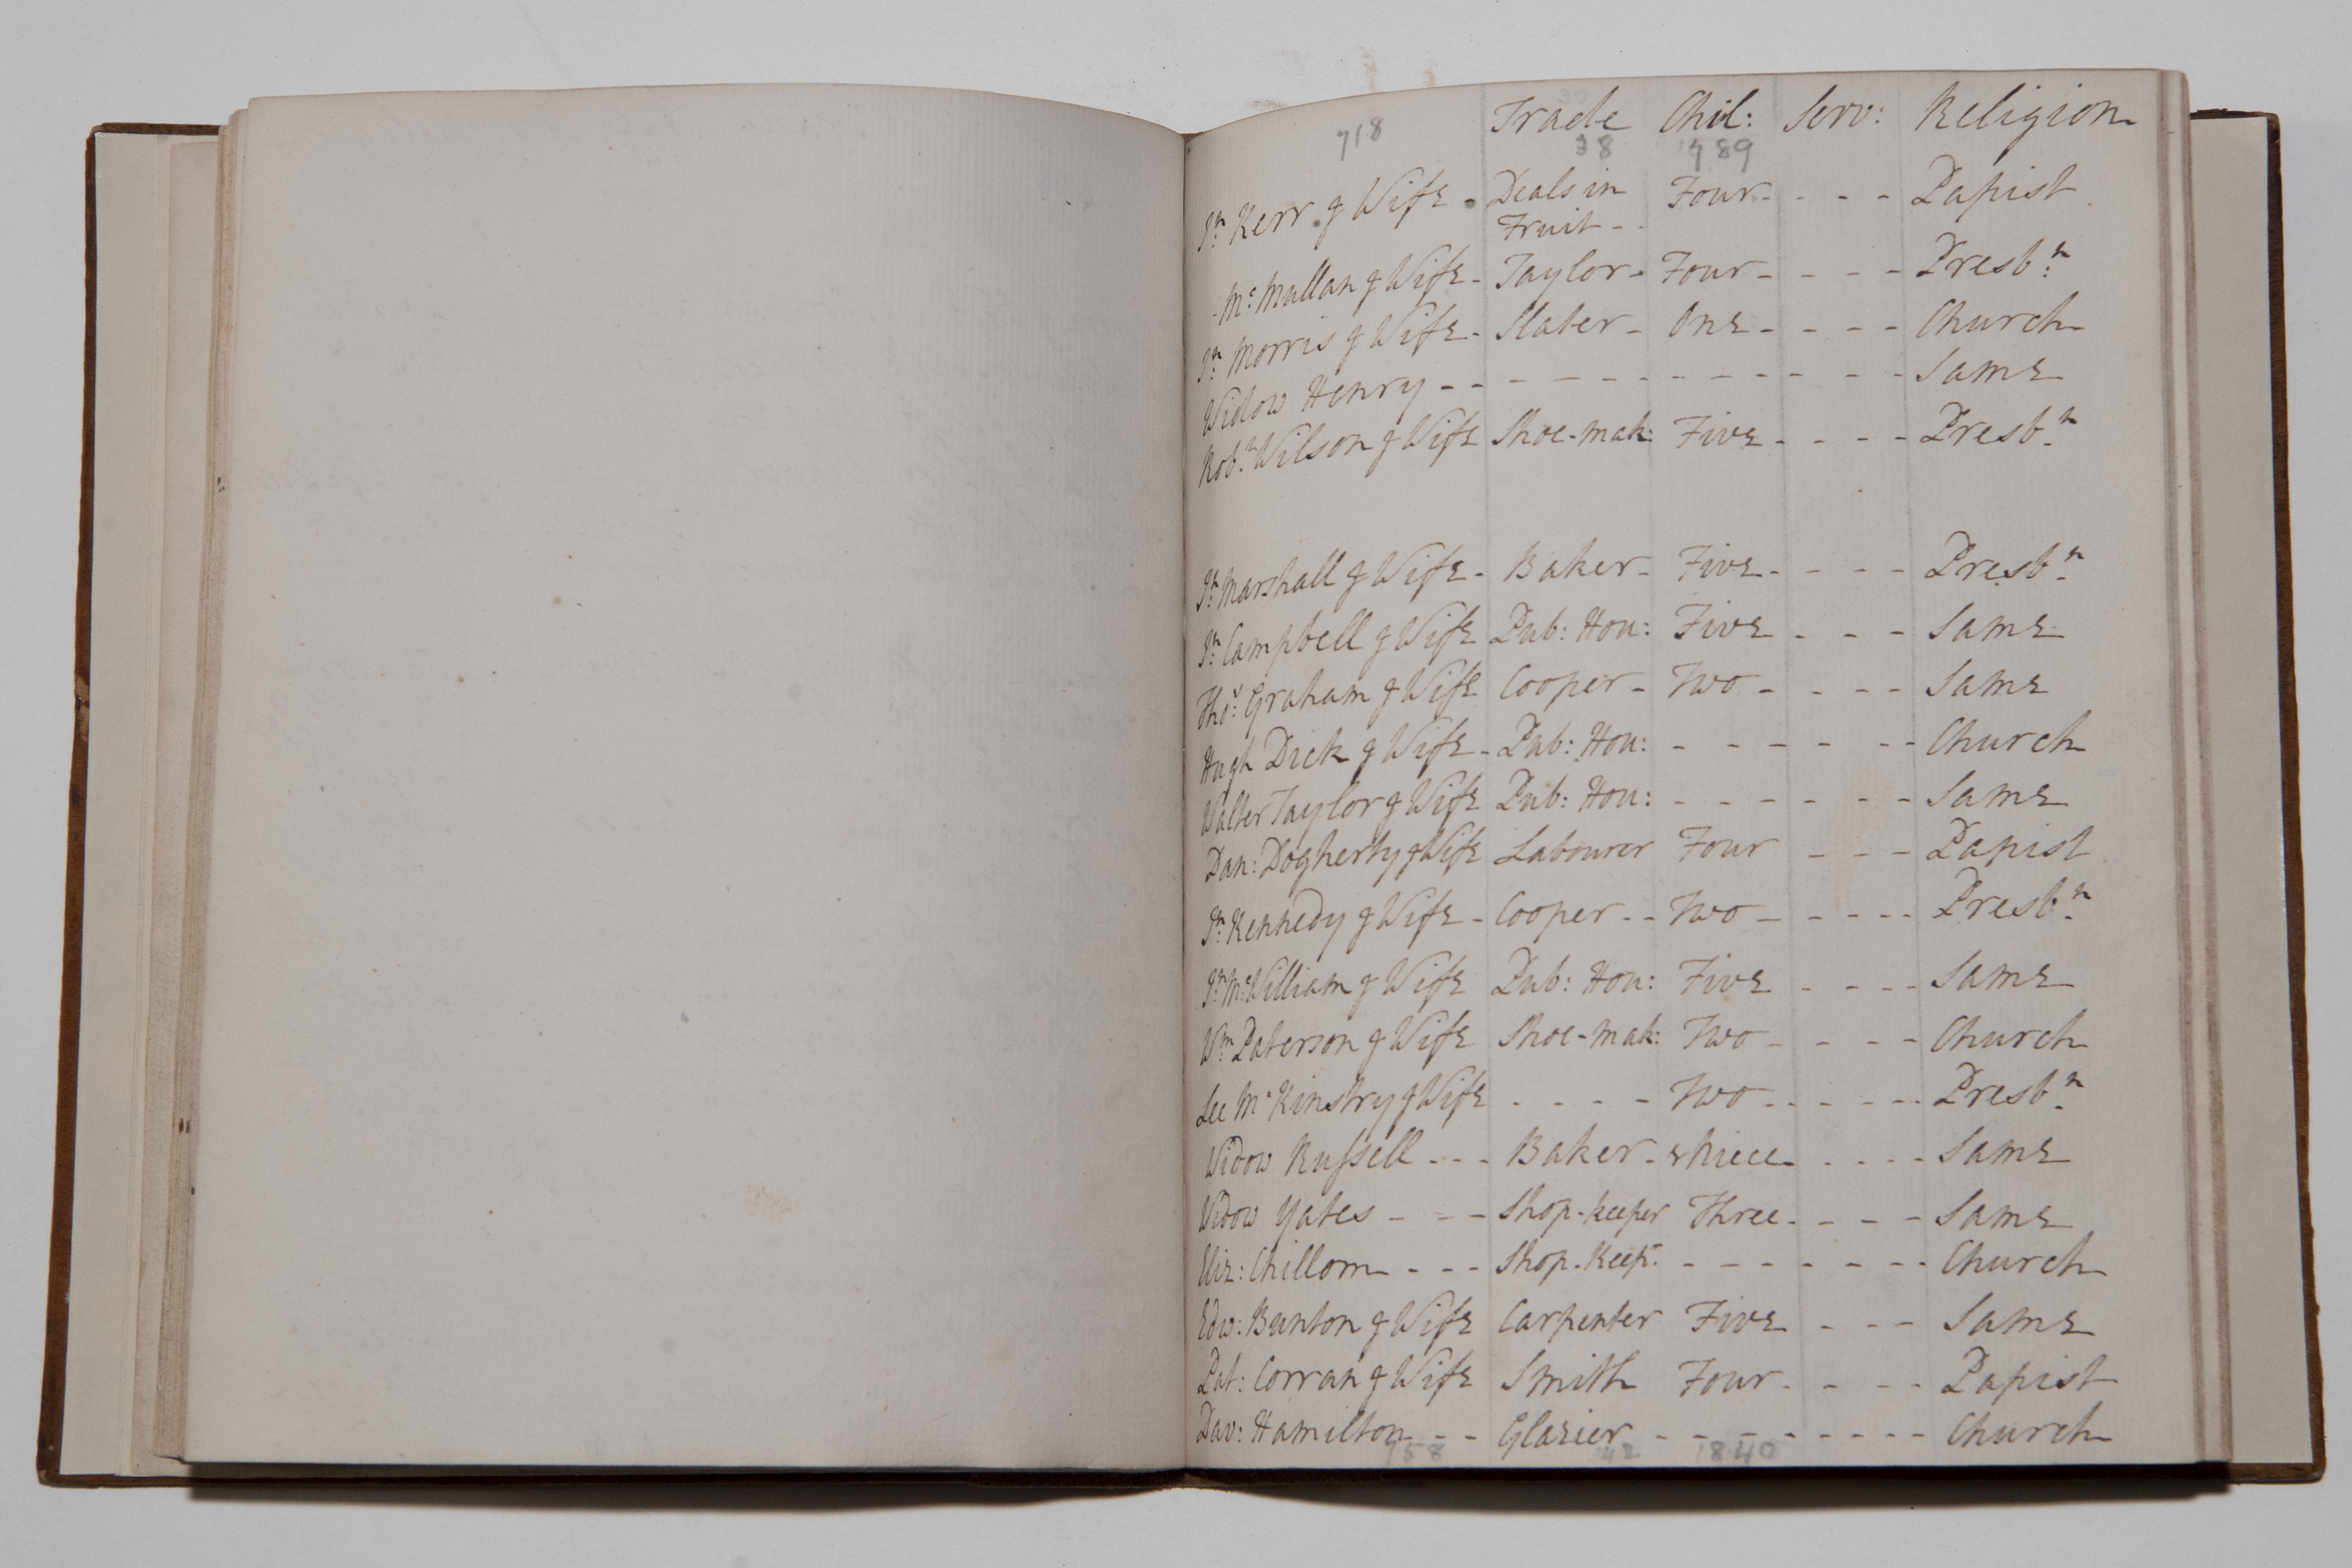 Trade Chil: Serv: Religion
718 38 1789
Jn. Kerr & Wife - Deals in Four - - - - Papist
Fruit - -
- Mc. Mullan & Wife - Taylor - Four - - - - Presbn.
Jn. Morris & Wife - Slater - One - - - - Church
Widow Henry - - - - - - - - - - - - - Same
Robt. Wilson & Wife Shoe-mak: Five - - - - Presbn.
Jn. Marshall & Wife - Baker - Five - - - - Presbn.
Jn. Campbell & Wife Pub: Hou: Five - - - Same
Thos. Graham & Wife Cooper - Two - - - - Same
Hugh Dick & Wife - Pub: Hou: - - - - - - Church
Walter Taylor & Wife Pub: Hou: - - - - - - Same
Dan: Dogherty & Wife Labourer Four - - - Papist
Jn. Kennedy & Wife - Cooper - - Two - - - - - Presbn.
Jn. Mc. William & Wife Pub: Hou: Five - - - - Same
Wm. Paterson & Wife Shoe-mak: Two - - - - Church
Lee Mc Kinstry & Wife - - - - Two - - - - - - Presbn.
Widow Russell - - - Baker - & Niece - - - - - Same
Widow Yates - - - - Shop-keeper Three - - - - Same
Eliz: Chillom - - - Shop-keepr. - - - - - - - Church
Edw: Bunton & Wife Carpenter Five - - - Same
Pat: Corran & Wife Smith Four - - - - Papist
Dav: Hamilton - - - Glazier - - - - - - - - - Church
758 42 1840